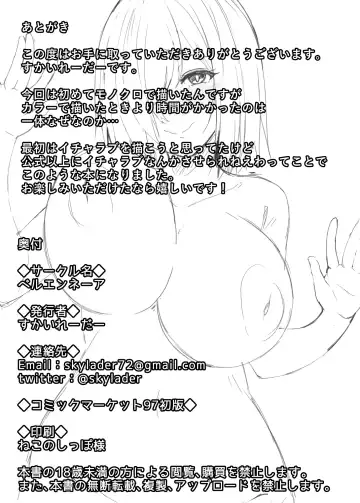 あとがき
この度はお手に取っていただきありがとうございます。
すかいれーだーです。
今回は初めてモノクロで描いたんですが
カラーで描いたときより時間がかかったのは
一体なぜなのか…
最初はイチャラブを描こうと思ってたけど
公式以上にイチャラブなんかさせられねえわってことで
このような本になりました。
お楽しみいただけたなら嬉しいです！
奥付
◆サークル名◆
ペルエンネーア
◆発行者◆
すかいれーだー
◆連絡先◆
Email：skylader72@gmail.com
twitter：@skylader
◆コミックマーケット97初版◆
◆印刷◆
ねこのしっぽ様
本書の18歳未満の方による閲覧、購買を禁止します。
また、本書の無断転載、複製、アップロードを禁止します。